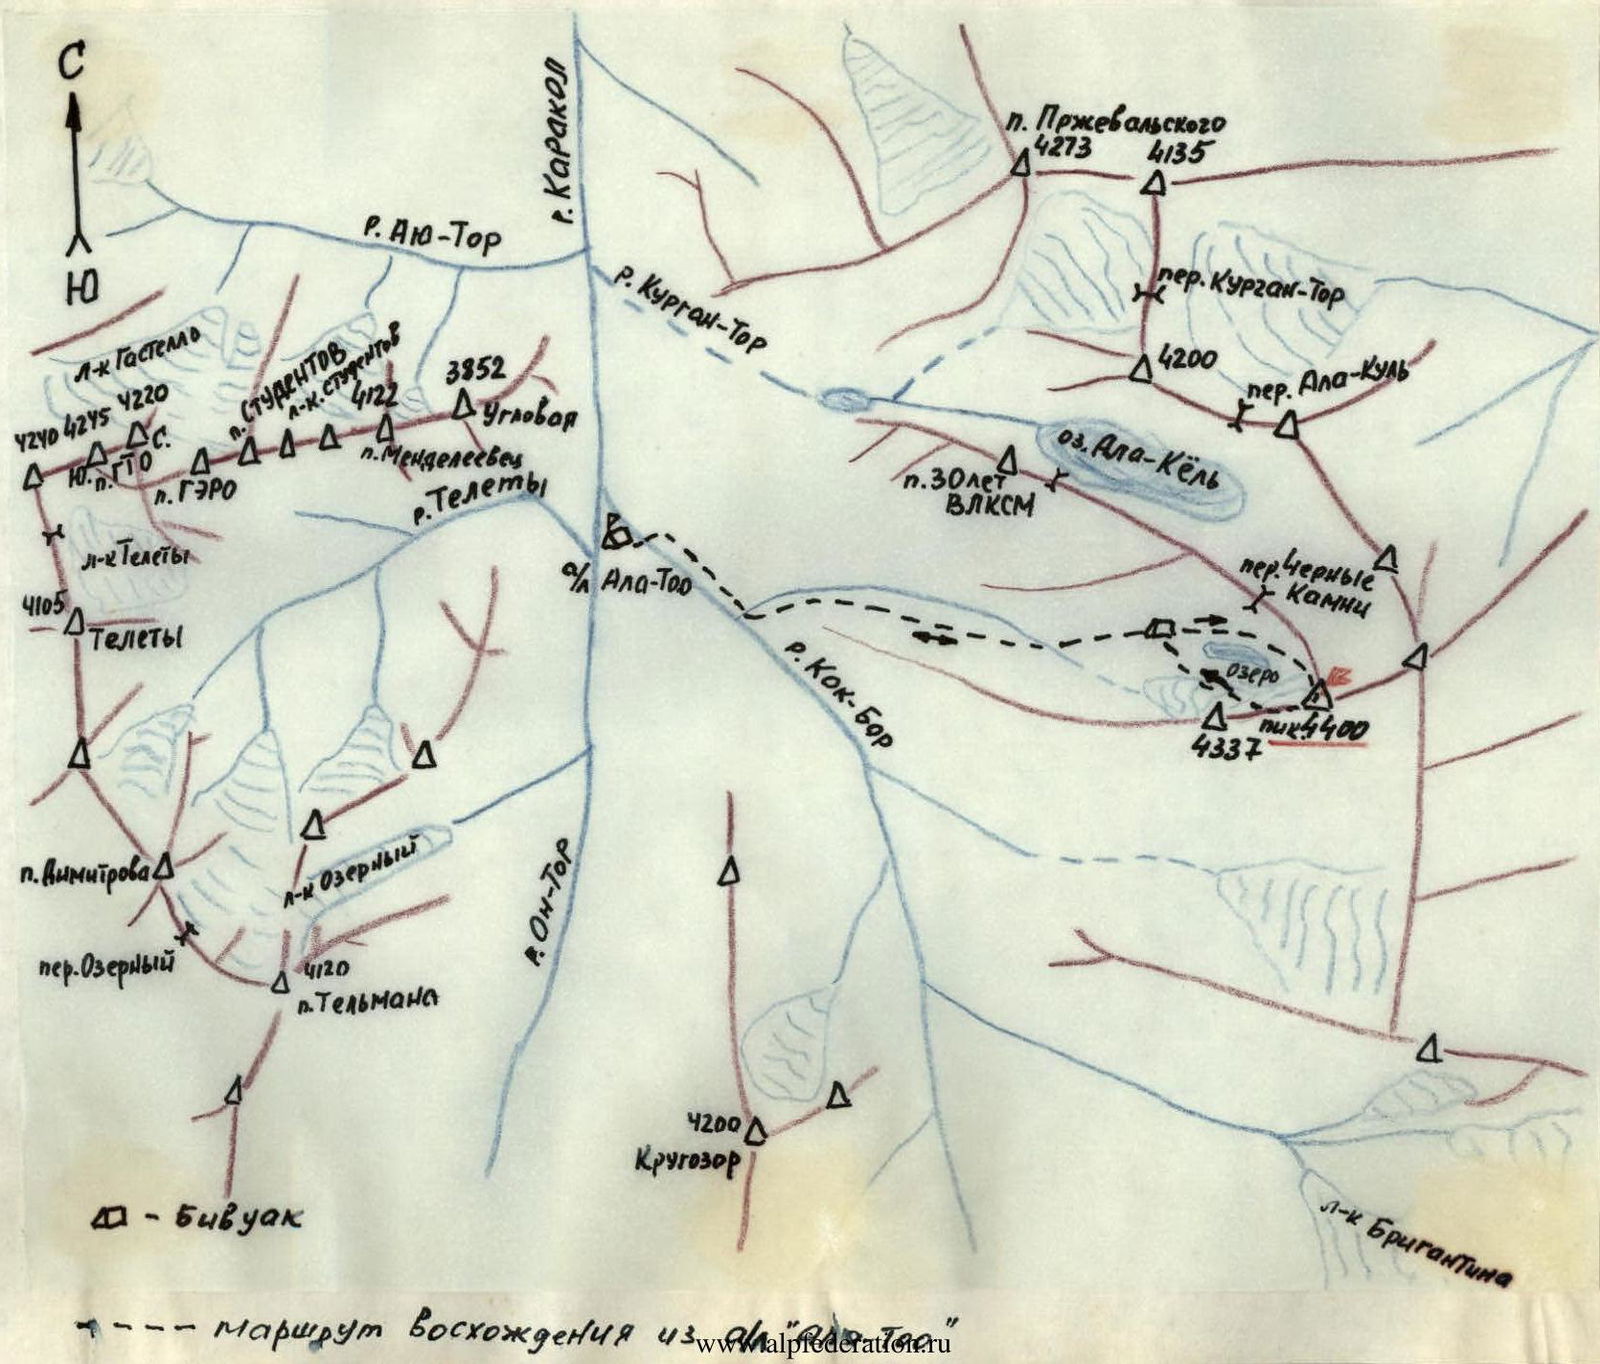 С
Ю
р. Каракол
р. Аю-Тор
р. Курган-Тор
п. Пржевальского
4273
4135
пер. Курган-Тор
4200
пер. Ала-Куль
оз. Ала-Кёль
п. 30 лет
ВЛКСМ
пер. Черные
Камни
л-к Гастелло
п. СТУДЕНТОВ
л-к. Студентов
4122
3852
Угловая
п. Менделеевец
4240
4245
4220
Ю. п. ГТО С.
п. ГЭРО
р. Телеты
л-к Телеты
4105
Телеты
а/л Ала-Тоо
р. Кок-Бор
озеро
4337
пик. 4400
п. Димитрова
пер. Озерный
л-к Озерный
4120
п. Тельмана
р. Он-Тор
4200
Кругозор
л-к Бригантина
- Бивуак
---- маршрут восхождения из а/л "Ала-Тоо"
www.alpfederation.ru